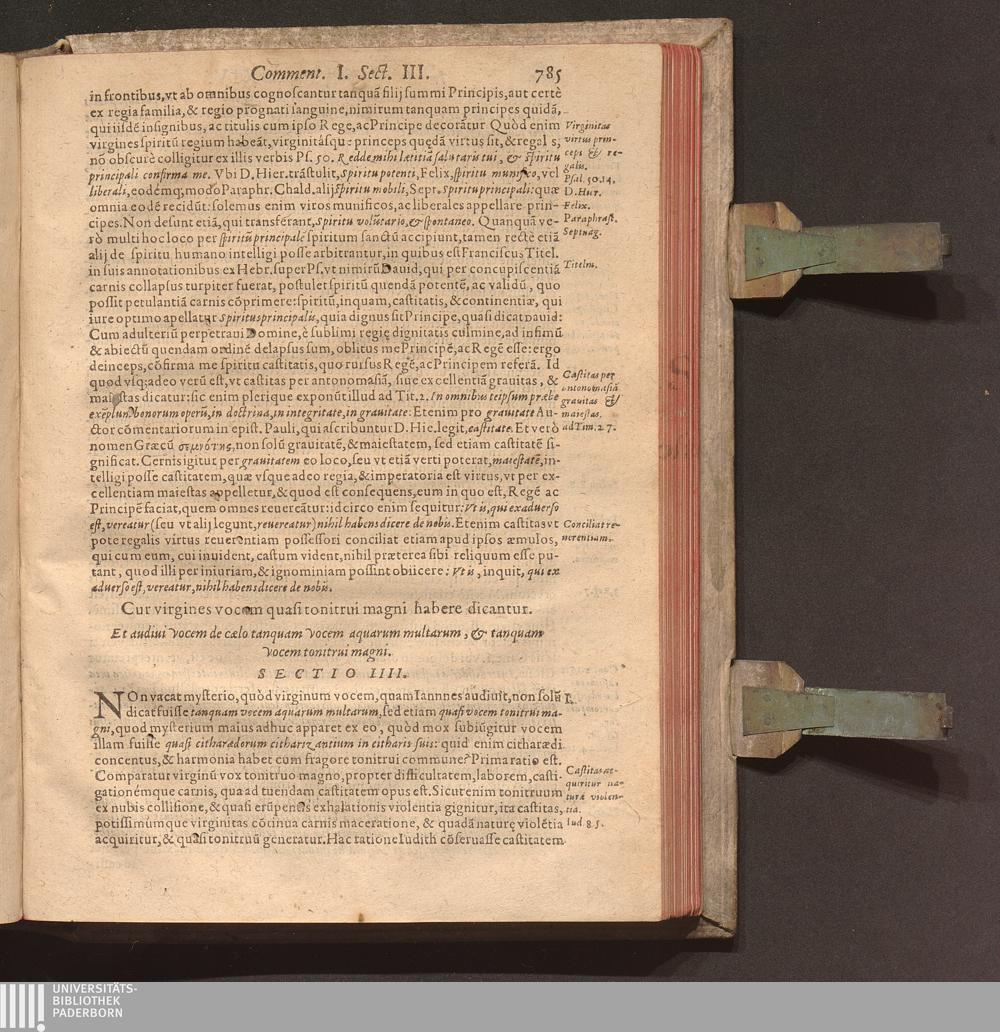 Comment. I. Sect. III. 785
in frontibus, vt ab omnibus cognoscantur tanquā filij summi Principis, aut certè
ex regia familia, & regio prognati sanguine, nimirum tanquam principes quidā,
qui iisdē insignibus, ac titulis cum ipso Rege, ac Principe decorātur Quòd enim
virgines spiritū regium habeāt, virginitásqu: princeps quędā virtus sit, & regal s,
nō obscurè colligitur ex illis verbis Ps. 50. Redde mihi lætitiā salutaris tui, & spiritu
principali confirma me. Vbi D. Hier. trāstulit, Spiritu potenti, Felix, spiritu munifico, vel
liberali, eodémq; modo Paraphr. Chald. alij spiritu mobili, Sept. spiritu principali: quæ
omnia eodē recidūt: solemus enim viros munificos, ac liberales appellare prin-
cipes. Non desunt etiā, qui transférant, spiritu volūtario, & spontaneo. Quanquā ve-
rò multi hoc loco per spiritū principalē spiritum sanctū accipiunt, tamen rectè etiā
alij de spiritu humano intelligi posse arbitrantur, in quibus est Franciscus Titel.
in suis annotationibus ex Hebr. super Ps. vt nimirū Dauid, qui per concupiscentiā
carnis collapsus turpiter fuerat, postulet spiritū quendā potentē, ac validū, quo
possit petulantiā carnis cōprimere: spiritū, inquam, castitatis, & continentiæ, qui
iure optimo apellatur Spiritus principalis, quia dignus sit Principe, quasi dicat Dauid:
Cum adulteriū perpetraui Domine, è sublimi regię dignitatis culmine, ad infimū
& abiectū quendam ordinē delapsus sum, oblitus me Principē, ac Regē esse: ergo
deinceps, cōfirma me spiritu castitatis, quo rursus Regē, ac Principem referā. Id
quod vsq; adeo verū est, vt castitas per antonomasiā, siue excellentiā grauitas, &
maiestas dicatur: sic enim plerique exponūt illud ad Tit. 2. In omnibus teipsum præbe
exēplum bonorum operū, in doctrina, in integritate, in grauitate: Etenim pro grauitate Au-
ctor cōmentariorum in epist. Pauli, qui ascribuntur D. Hie. legit, castitate. Et verò
nomen Græcū σεμνότης, non solū grauitatē, & maiestatem, sed etiam castitatē si-
gnificat. Cernis igitur per grauitatem eo loco, seu vt etiā verti poterat, maiestatē, in-
telligi posse castitatem, quæ vsque adeo regia, & imperatoria est virtus, vt per ex-
cellentiam maiestas appelletur, & quod est consequens, eum in quo est, Regē ac
Principē faciat, quem omnes reuereātur: idcirco enim sequitur: Vt is, qui ex aduerso
est, vereatur (seu vt alij legunt, reuereatur) nihil habens dicere de nobis. Etenim castitas vt
pote regalis virtus reuerentiam possessori conciliat etiam apud ipsos æmulos,
qui cum eum, cui inuident, castum vident, nihil præterea sibi reliquum esse pu-
tant, quod illi per iniuriam, & ignominiam possint obiicere: Vt is, inquit, qui ex
aduerso est, vereatur, nihil habens dicere de nobis.
Virginitas
virtus prin-
ceps & re-
galis.
Psal. 50.14.
D. Hier.
Felix.
Paraphrast.
Septuag.
Titelm.
Castitas per
antonomasiā
grauitas &
maiestas.
ad Tim. 2 7.
Conciliat re-
uerentiam.
Cur virgines vocem quasi tonitrui magni habere dicantur.
Et audiui vocem de cælo tanquam vocem aquarum multarum, & tanquam
vocem tonitrui magni.
SECTIO IIII.
NOn vacat mysterio, quòd virginum vocem, quam Ioannnes audiuit, non solū I.
dicat fuisse tanquam vocem aquarum multarum, sed etiam quasi vocem tonitrui ma-
gni, quod mysterium maius adhuc apparet ex eo, quòd mox subiūgitur vocem
illam fuisse quasi citharædorum citharizantium in citharis suis: quid enim citharædi
concentus, & harmonia habet cum fragore tonitrui commune? Prima ratio est.
Comparatur virginū vox tonitruo magno, propter difficultatem, laborem, casti-
gationémque carnis, qua ad tuendam castitatem opus est. Sicut enim tonitruum
ex nubis collisione, & quasi erūpentis exhalationis violentia gignitur, ita castitas,
potissimúmque virginitas cōtinua carnis maceratione, & quadā naturę violētia
acquiritur, & quasi tonitruū generatur. Hac ratione Iudith cōseruasse castitatem
Castitas ac-
quiritur na-
turæ violen-
tia.
Iud. 8 5.
UNIVERSITÄTS-
BIBLIOTHEK
PADERBORN